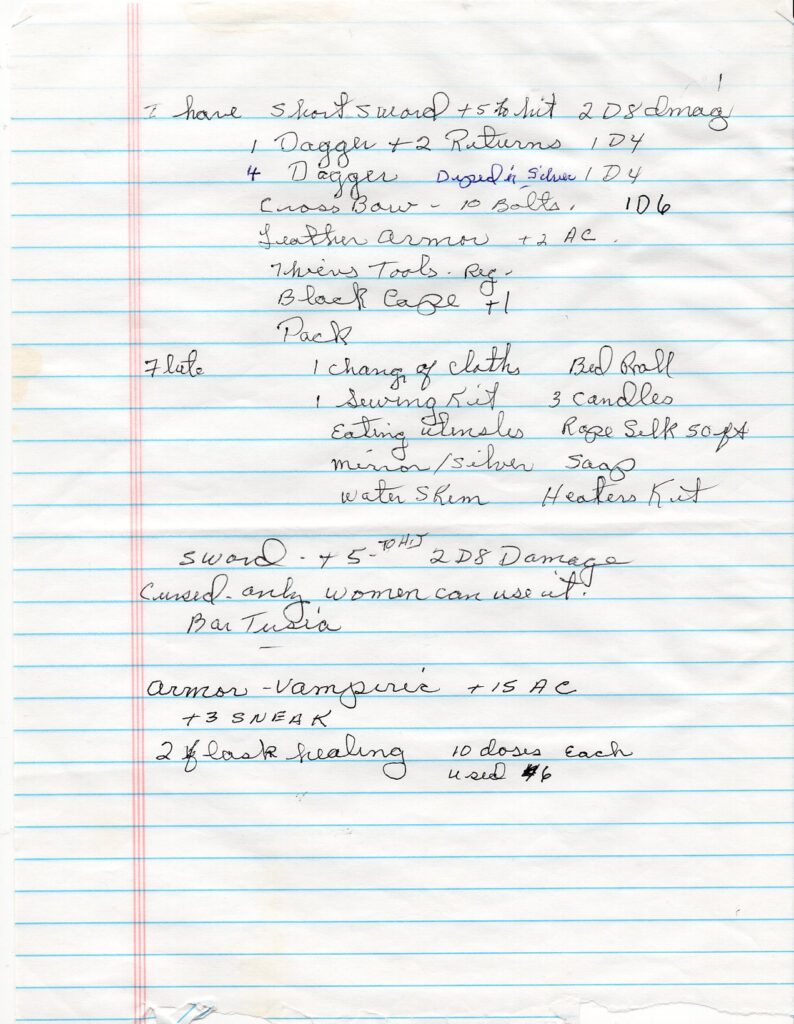 1
I have Short Sword +5 to hit 2D8 dmag
1 Dagger +2 Returns 1D4
4 Dagger Diped in Silver 1D4
Cross Bow - 10 Bolts. 1D6
Leather Armor +2 AC.
Thievs Tools - Reg.
Black Cape +1
Pack
Flute 1 change of cloths Bed Roll
1 Sewing Kit 3 candles
Eating utensles Rope Silk 50 ft
mirror/silver Soap
Water Skin Healers Kit
Sword - +5 - TO HIT 2D8 Damage
Cursed - only women can use it!
Bar Tusia
Armor - Vampiric +15 AC
+3 SNEAK
2 flask healing 10 doses each
used 6